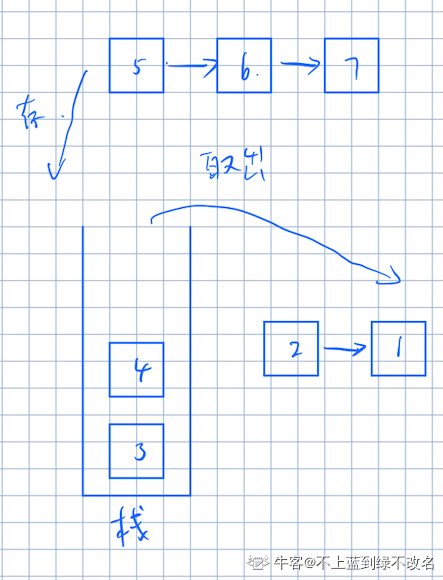 5 → 6 → 7
存
取出
2 → 1
4
3
栈
牛客@不上蓝到绿不改名